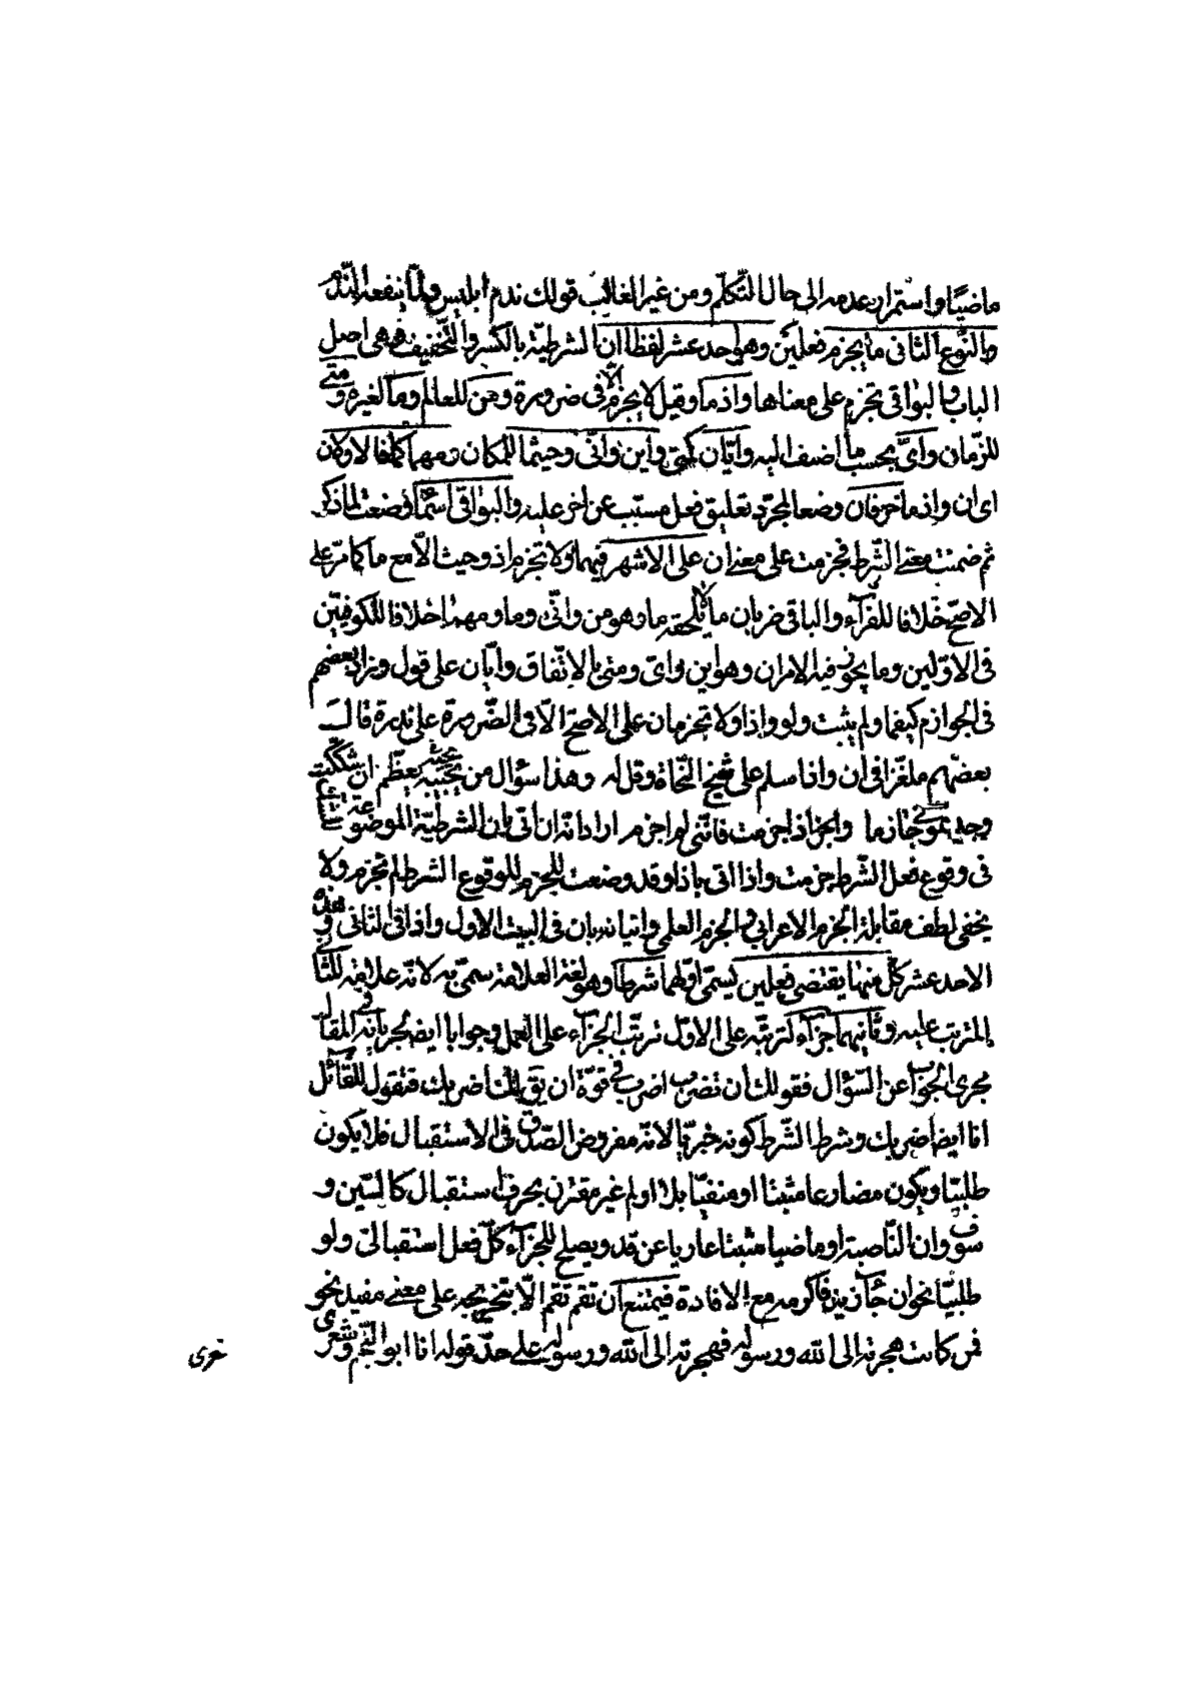 ماضيًا واستمرار عدمه الى حال التّكلّم ومن غير الغالب قولك ندم ابليس ولمّا ينفعه النّدم
والنّوع الثانى ما يجزم فعلين وهو احد عشر لفظا ان الشرطيّة بالكسر والتّخفيف وهى اصل
الباب والبواقى تجزم على معناها واذما وقيل لا يجزم الّا فى ضرورة ومن للعالم وما لغيره ومتى
للزّمان واىّ بحسب ما اضيف اليه وايّان كمتى واين وانّى وحيثما للمكان ومهما كما فالاولان
اى ان واذما حرفان وضعا لمجرّد تعليق فعل مسبّب عن اخر عليه والبواقى اسمآء وضعت لما ذكر
ثم ضمنت معنى الشّرط فجزمت على معنى ان على الاشهر فيهما ولا تجزم اذ وحيث الّا مع ما كما مرّ على
الاصحّ خلافا للفرّآء والباقى ضربان ما لا يلحقه ما وهو من وانّى وما ومهما خلافا للكوفيّين
فى الاوّلين وما يجوز فيه الامران وهو اين واى ومتى بالاتّفاق وايّان على قول وزاد بعضهم
فى الجوازم كيفما ولم يثبت ولو واذا ولا تجزمان على الاصحّ الّا فى الضّرورة على ندرة قال
بعضهم ملغزا فى ان واذا سلم على شيخ النّحاة وقل له وهذا سؤال من يجيبه يعظّم ان شككت
وجدتمونى جازما واذا جزمت فانّنى لم اجزم اراد انّه ان اتى بان الشرطيّة الموضوعة
فى وقوع فعل الشّرط جزمت واذا اتى باذا وقد وضعت للجزم للوقوع الشرط لم تجزم ولا
يخفى لطف مقابلة الجزم الاعرابى بالجزم العلمى واتيانه بان فى البيت الاول واذا فى الثانى وهذه
الاحد عشر كلّ منها يقتضى فعلين يسمّى اوّلهما شرطا وهو لغة العلامة سمّى به لانّه علامة للثّانى
المترتب عليه وثانيهما جزآء لترتبّه على الاوّل ترتّب الجزآء على العمل وجوابا ايضا لجريانه فى المقال
مجرى الجواب عن السّؤال فقولك ان تضرب اضرب فى قوّة ان يق لك اضربك فتقول للقآئل
انا ايضا اضربك وشرط الشّرط كونه خبريّا لانّه مفروض الصّدق فى الاستقبال فلا يكون
طلبيّا ويكون مضارعا مثبتا او منفيّا بلا او لم غير مقترن بحرف استقبال كالسّين و
سوف وان النّاصبة او ماضيا مثبتا عاريا عن قد ويصلح للجزآء كلّ فعل استقبالى ولو
طلبيّا نحو ان جآء زيد فاكرمه مع الافادة فيمتنع ان تقم تقم الّا بتخريجه على معنى مفيد نحو
فمن كانت هجرته الى الله ورسوله فهجرته الى الله ورسوله على حدّ قوله انا ابو النّجم وشعرى